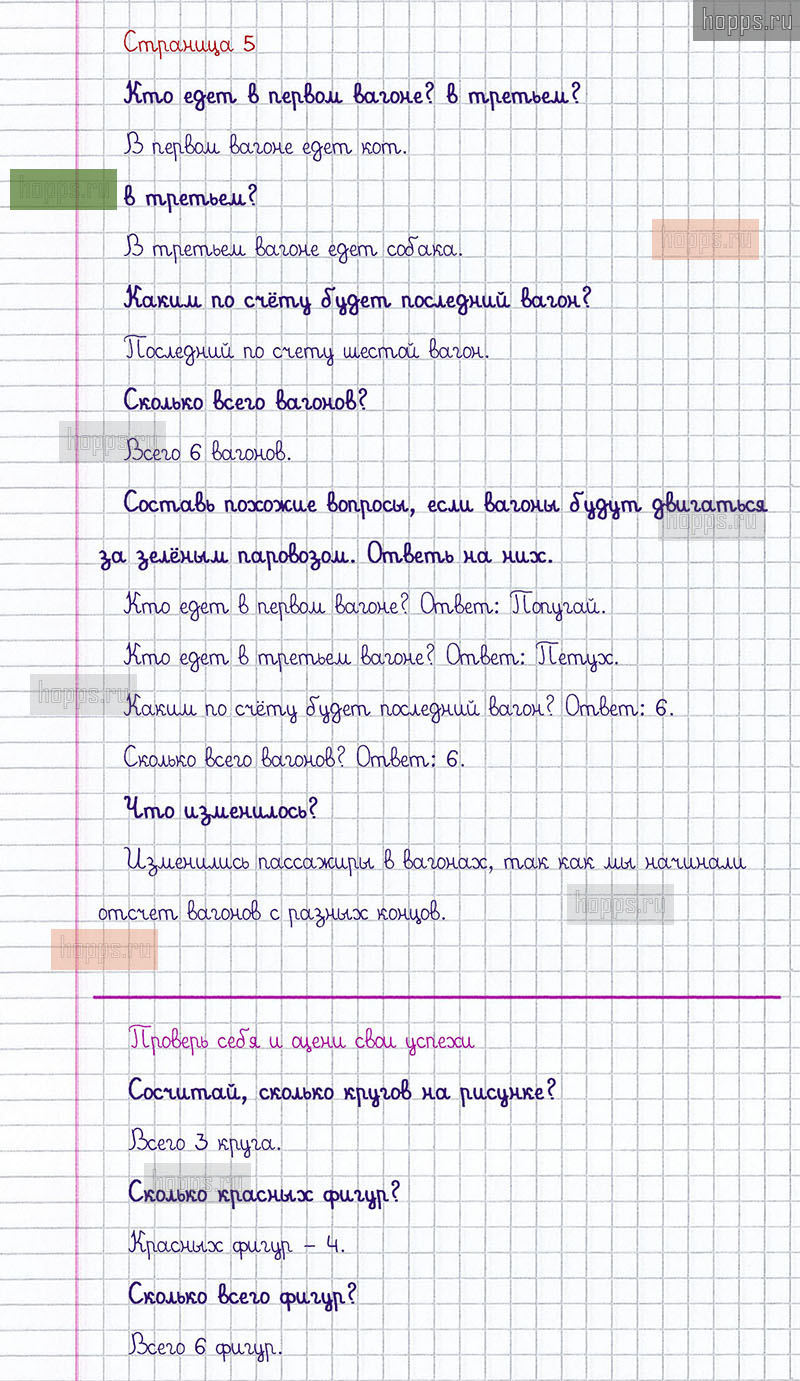 hopps.ru
Страница 5
Кто едет в первом вагоне? в третьем?
В первом вагоне едет кот.
hopps.ru
в третьем?
hopps.ru
В третьем вагоне едет собака.
Каким по счёту будет последний вагон?
Последний по счету шестой вагон.
Сколько всего вагонов?
hopps.ru
Всего 6 вагонов.
Составь похожие вопросы, если вагоны будут двигаться
hopps.ru
за зелёным паровозом. Ответь на них.
Кто едет в первом вагоне? Ответ: Попугай.
Кто едет в третьем вагоне? Ответ: Петух.
hopps.ru
Каким по счёту будет последний вагон? Ответ: 6.
Сколько всего вагонов? Ответ: 6.
Что изменилось?
Изменились пассажиры в вагонах, так как мы начинали
hopps.ru
отсчет вагонов с разных концов.
hopps.ru
Проверь себя и оцени свои успехи
Сосчитай, сколько кругов на рисунке?
Всего 3 круга.
hopps.ru
Сколько красных фигур?
Красных фигур – 4.
Сколько всего фигур?
Всего 6 фигур.